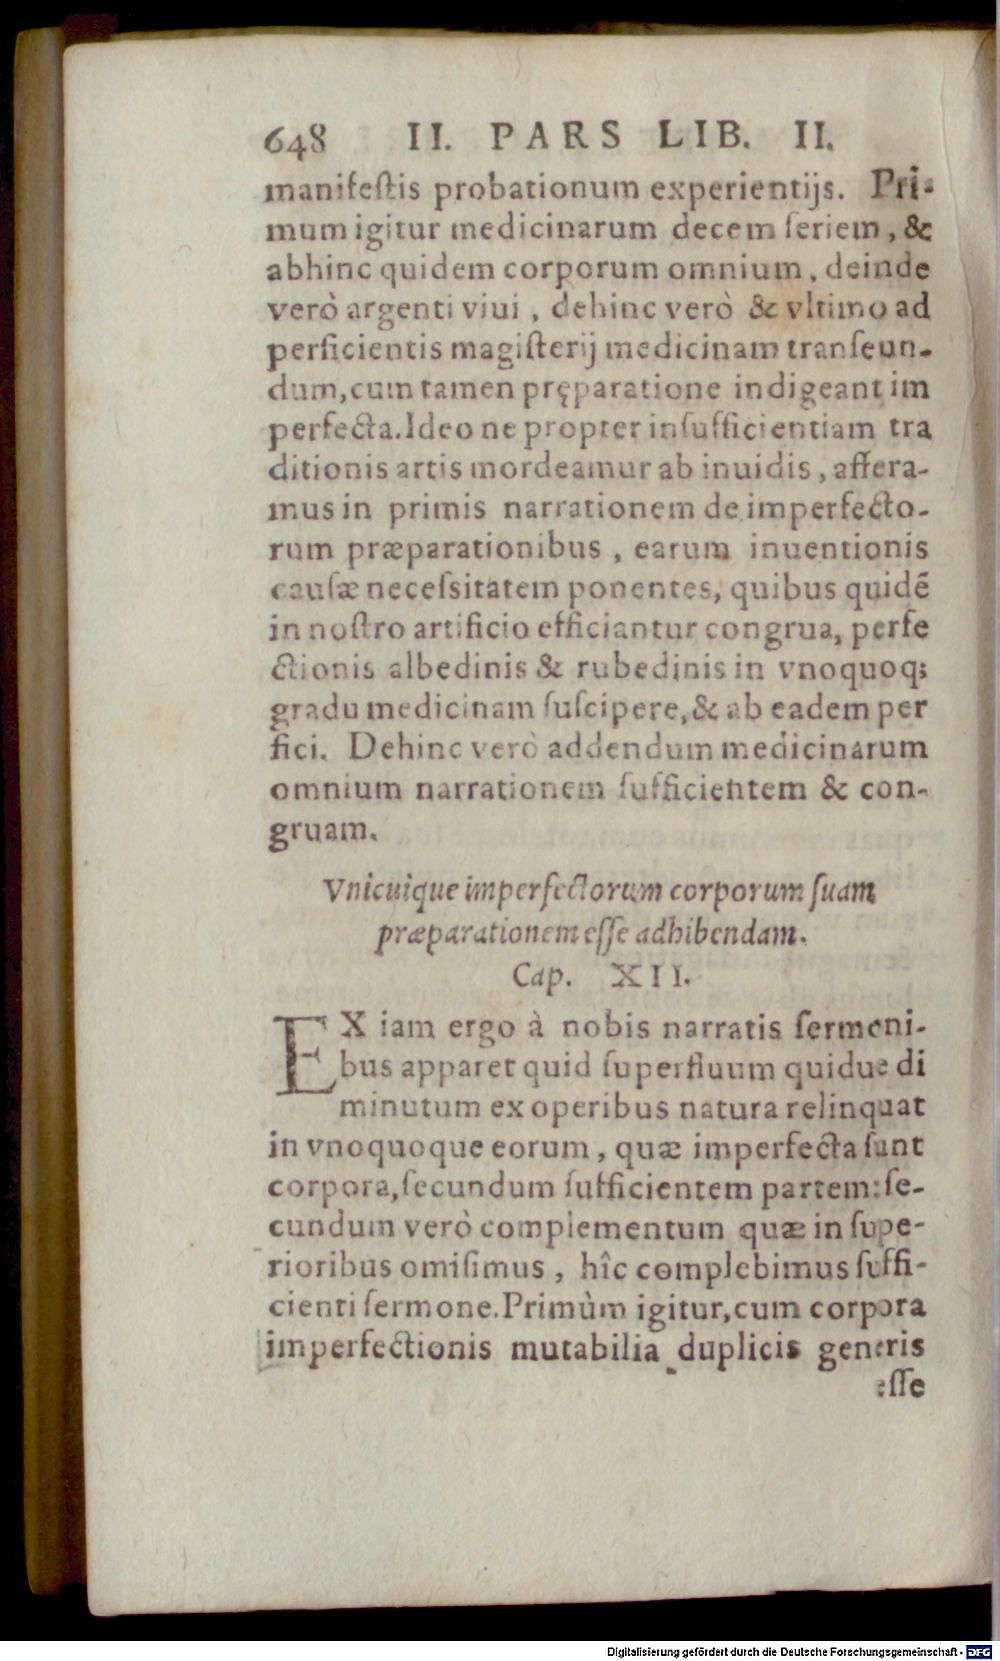 648 II. PARS LIB. II.
manifeſtis probationum experientijs. Pri-
mum igitur medicinarum decem ſeriem, &
abhinc quidem corporum omnium, deinde
verò argenti viui, dehinc verò & vltimo ad
perficientis magiſterij medicinam tranſeun-
dum, cum tamen pręparatione indigeant im
perfecta. Ideo ne propter inſufficientiam tra
ditionis artis mordeamur ab inuidis, affera-
mus in primis narrationem de imperfecto-
rum præparationibus, earum inuentionis
cauſæ neceſsitatem ponentes, quibus quidē
in noſtro artificio efficiantur congrua, perfe
ctionis albedinis & rubedinis in vnoquoq;
gradu medicinam ſuſcipere, & ab eadem per
fici. Dehinc verò addendum medicinarum
omnium narrationem ſufficientem & con-
gruam.
Vnicuique imperfectorum corporum ſuam
præparationem eſſe adhibendam.
Cap. XII.
EX iam ergo à nobis narratis ſermoni-
bus apparet quid ſuperfluum quidue di
minutum ex operibus natura relinquat
in vnoquoque eorum, quæ imperfecta ſunt
corpora, ſecundum ſufficientem partem: ſe-
cundum verò complementum quæ in ſupe-
rioribus omiſimus, hîc complebimus ſuffi-
cienti ſermone. Primùm igitur, cum corpora
imperfectionis mutabilia duplicis generis
eſſe
Digitalisierung gefördert durch die Deutsche Forschungsgemeinschaft - DFG